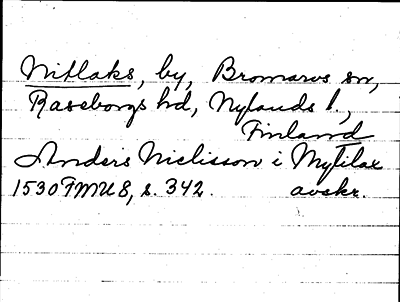 Nitlaks, by, Bromarvs sn,
Raseborgs hd, Nylands l.,
Finland
Anders Niclisson i Mytilax
1530 FMU 8, s. 342. avskr.